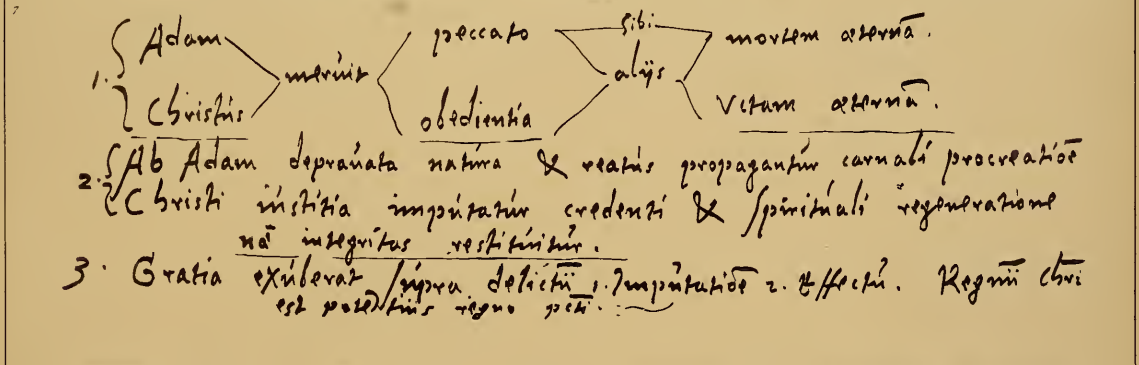 7
1. { Adam meruit peccato sibi mortem æternā.
alijs
{ Christus obedientia Vitam æternā.
2. { Ab Adam deprauata natura & reatus propagantur carnali procreatiōe
{ Christi iustitia imputatur credenti & spirituali regeneratione
nā integritas restituitur.
3. Gratia exuberat supra delictū 1. Imputatiōe 2. Effectu. Regnū Chri
est potentius regno pcti.